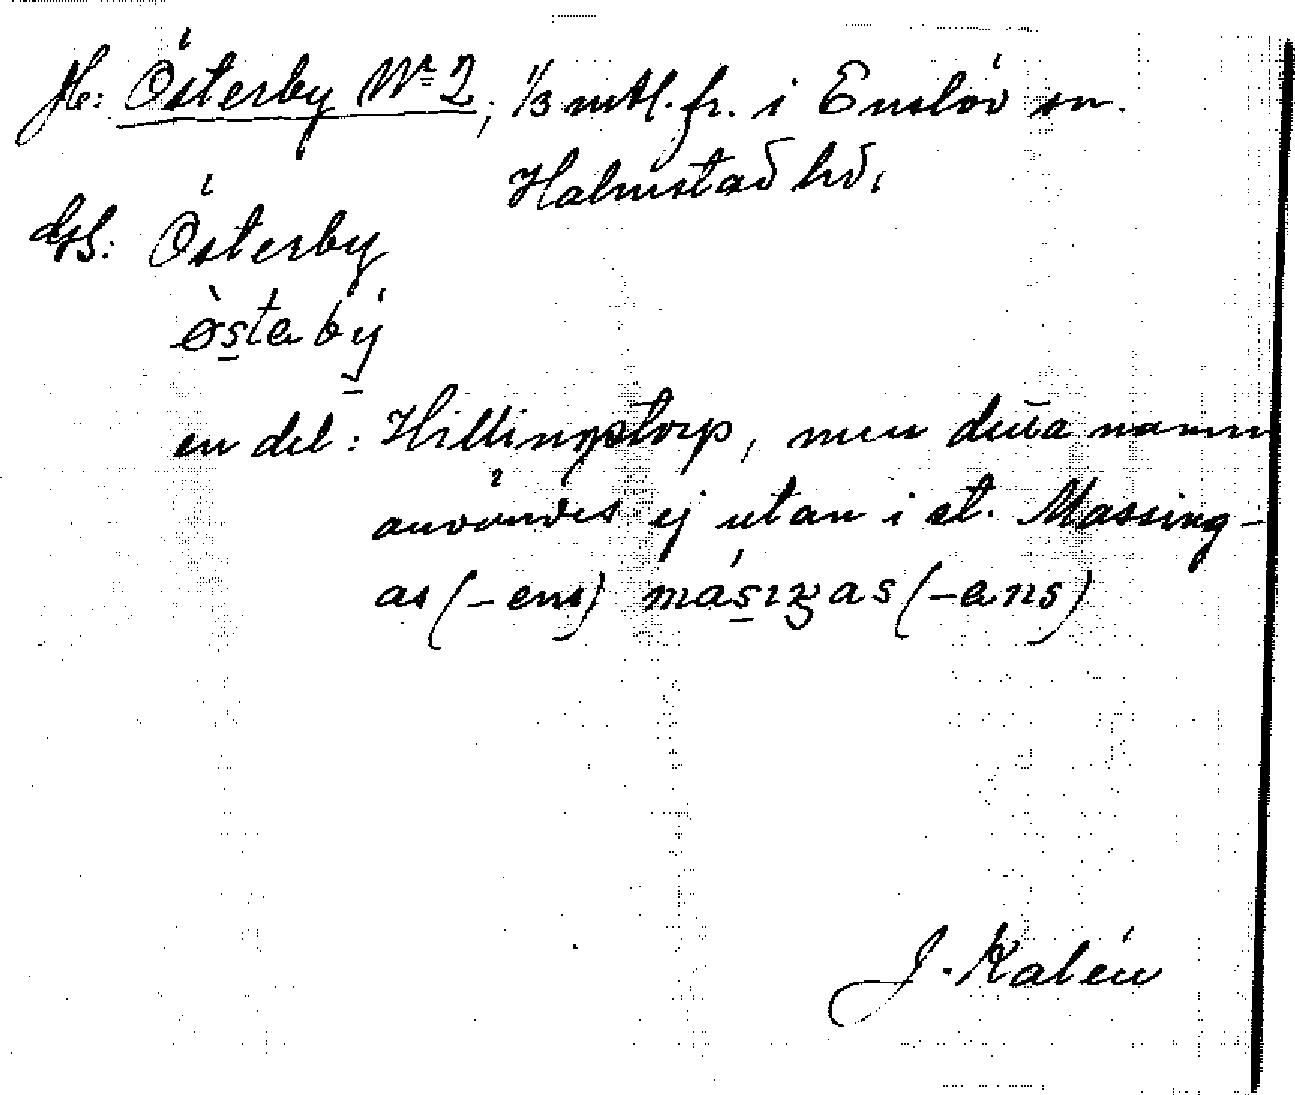 Jb: Österby Nr 2, 1/3 mtl. fr. i Enslöv sn.
Halmstad hd.
Österby
östa bÿ
en del: Hillingstorp, men detta namn
användes ej utan i st. Massing-
as (-ens) másıŋas (-ans)
J. Kalén